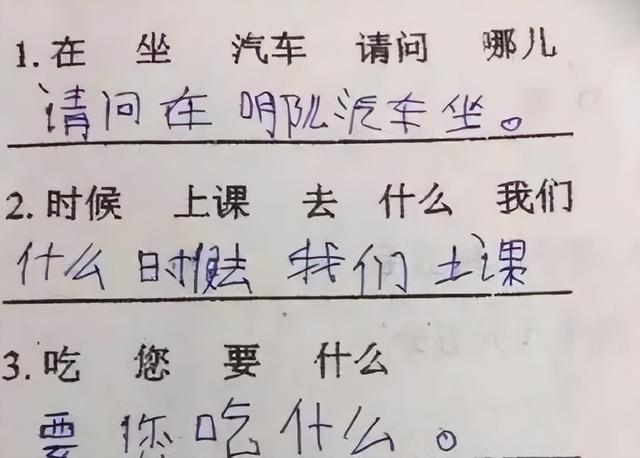 1. 在 坐 汽车 请问 哪儿
请问在哪儿汽车坐。
2. 时候 上课 去 什么 我们
什么 时候去 我们 上课
3. 吃 您 要 什么
要 您 吃 什么。